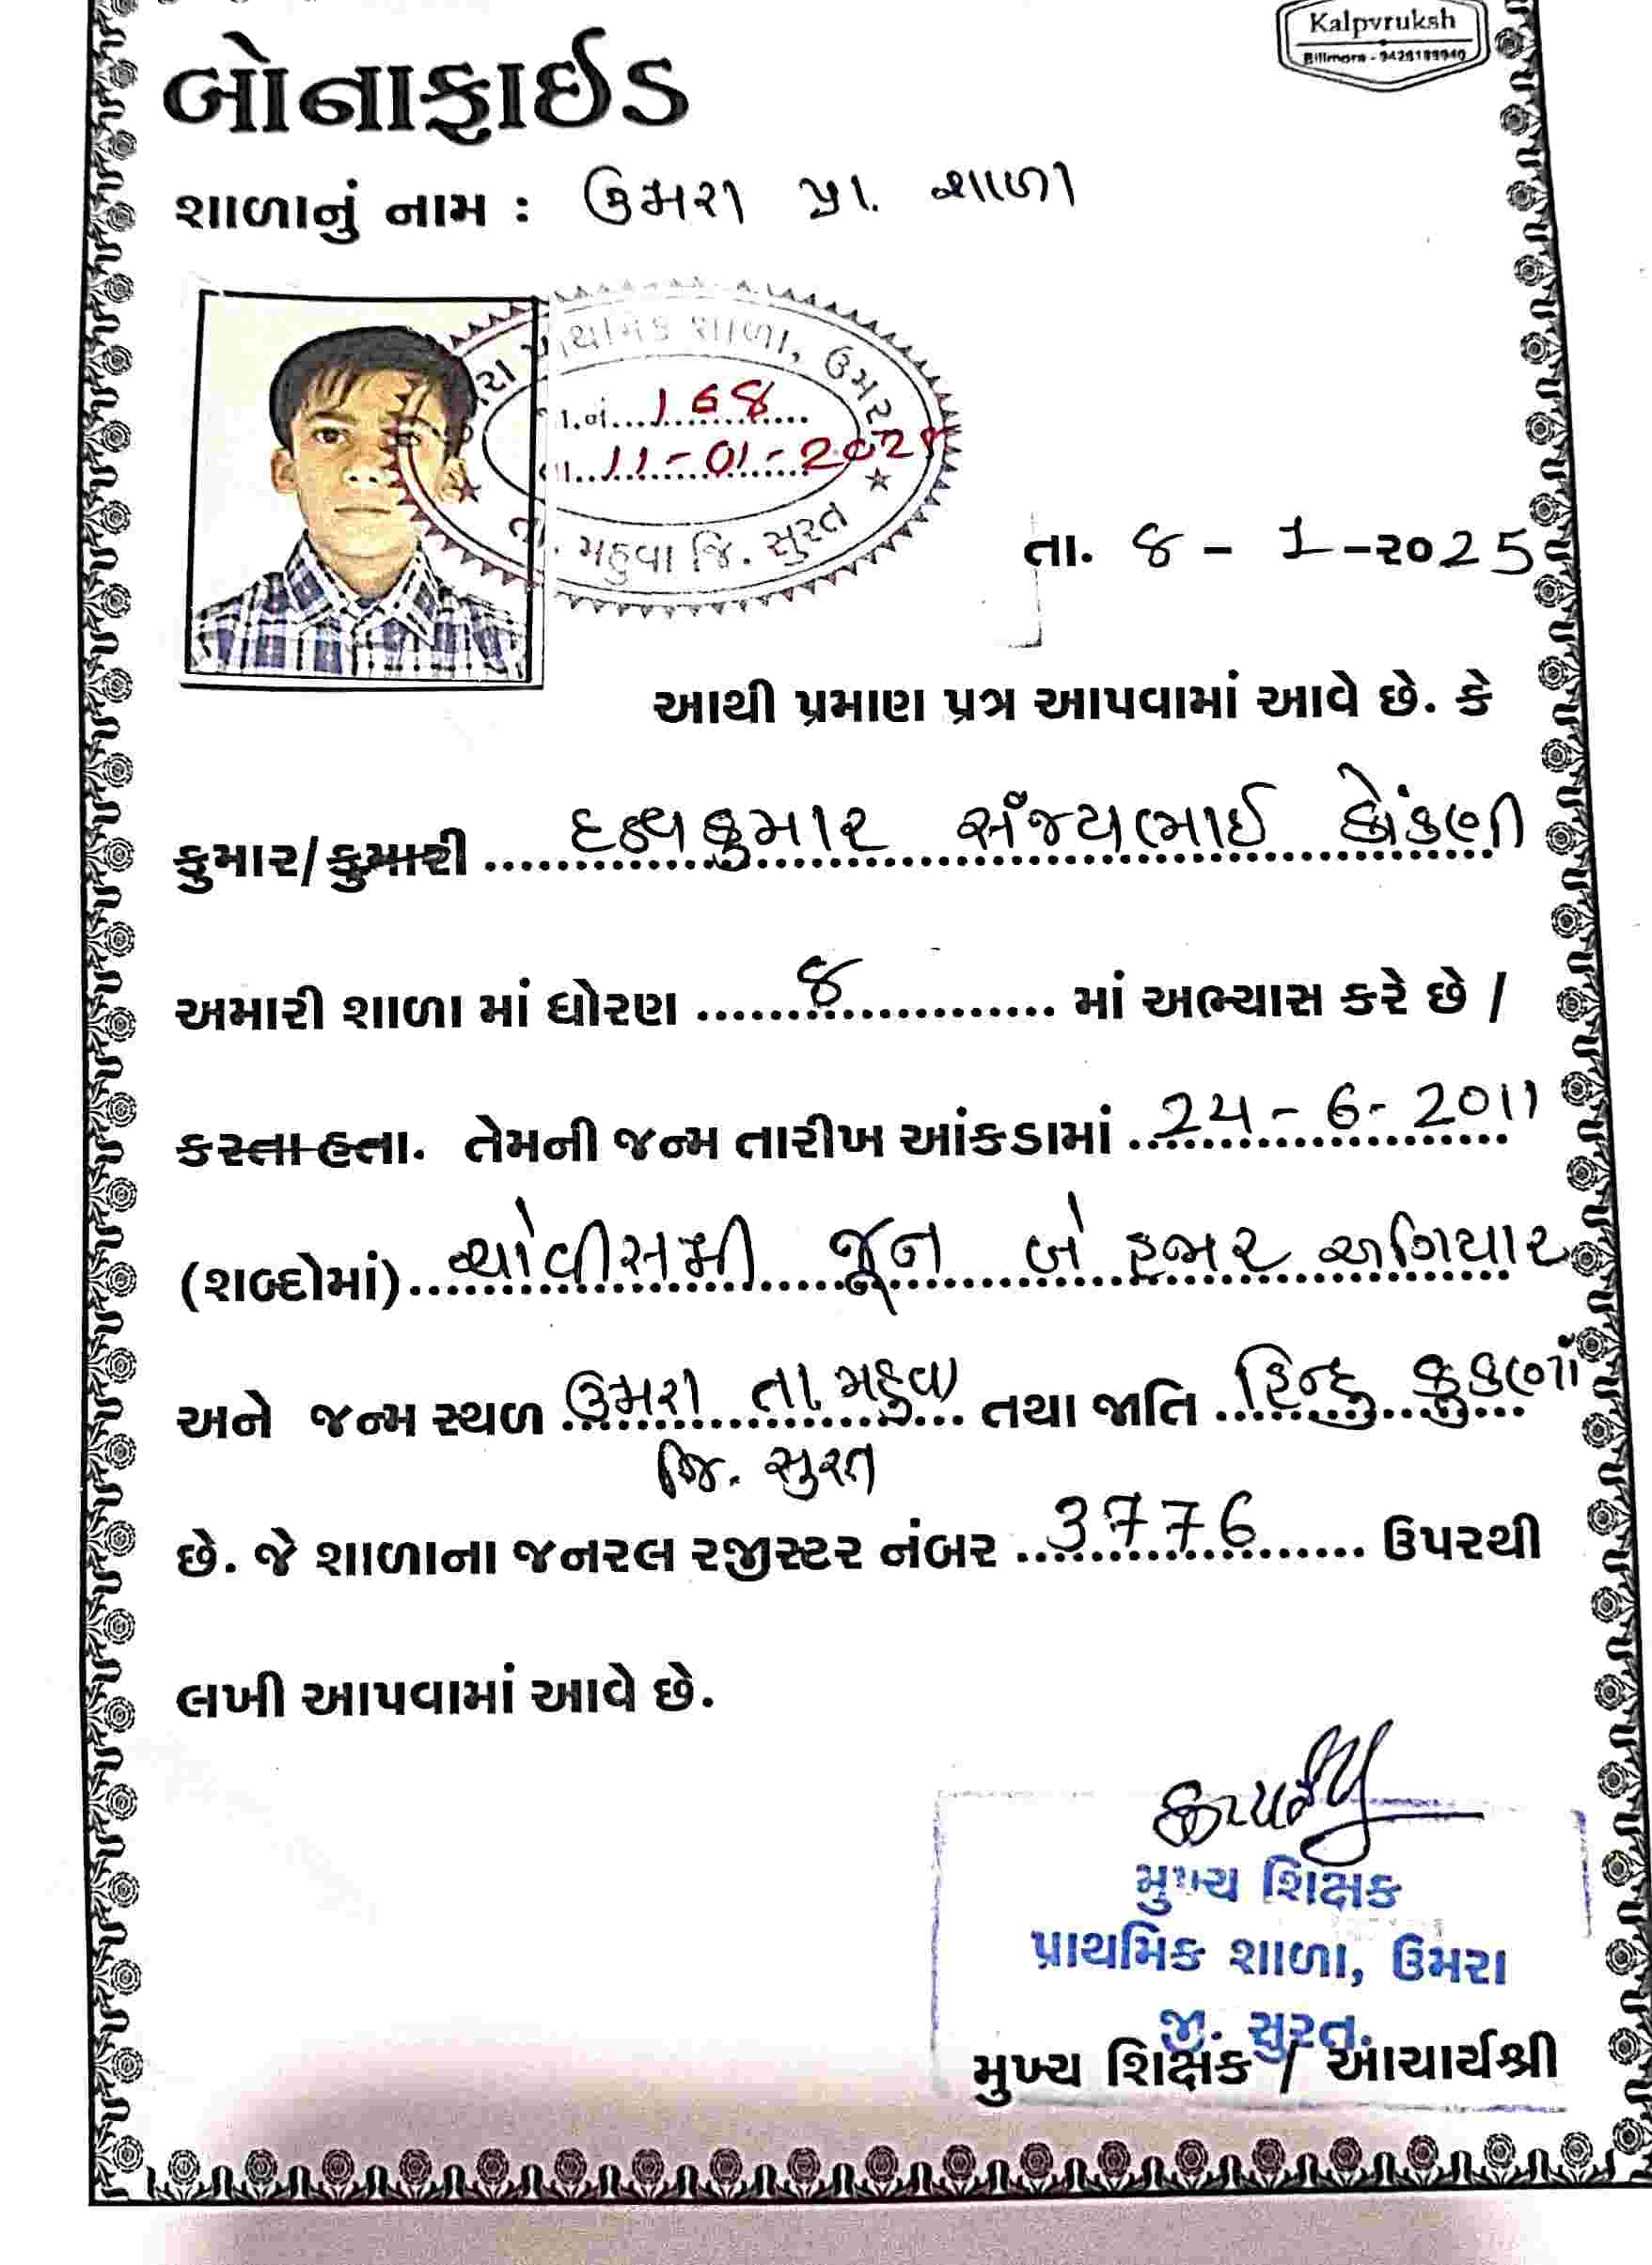 Kalpvruksh
Billimora - 9426189940
બોનાફાઈડ
શાળાનું નામ : ઉમરા પ્રા. શાળા
પ્રાથમિક શાળા, ઉમરા
જા.નં. 168
તા. 11-01-2025
તા. મહુવા જિ. સુરત
તા. 8 - 1 -૨૦25
આથી પ્રમાણ પત્ર આપવામાં આવે છે. કે
કુમાર/કુમારી સંજયભાઈ કોંકણી
અમારી શાળા માં ધોરણ 8 માં અભ્યાસ કરે છે /
કરતા હતા. તેમની જન્મ તારીખ આંકડામાં 24-6-2011
(શબ્દોમાં) ચોવીસમી જૂન બે હજાર અગિયાર
અને જન્મ સ્થળ ઉમરા તા. મહુવા તથા જાતિ હિન્દુ કુકણાં
જિ. સુરત
છે. જે શાળાના જનરલ રજીસ્ટર નંબર 3776 ઉપરથી
લખી આપવામાં આવે છે.
મુખ્ય શિક્ષક
પ્રાથમિક શાળા, ઉમરા
જી. સુરત.
મુખ્ય શિક્ષક / આચાર્યશ્રી